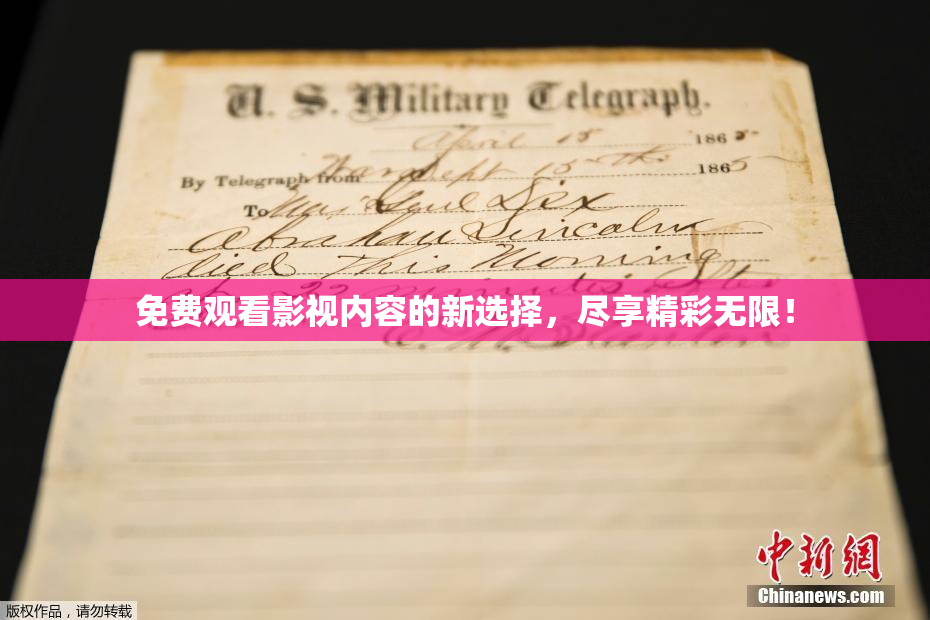 U. S. Military Telegraph.
April 15 1865
By Telegraph from War Dept 15th 1865
To Maj Genl Dix
Abraham Lincoln
died This Morning
22 minutes after
免费观看影视内容的新选择，尽享精彩无限！
中新网
Chinanews.com
版权作品，请勿转载